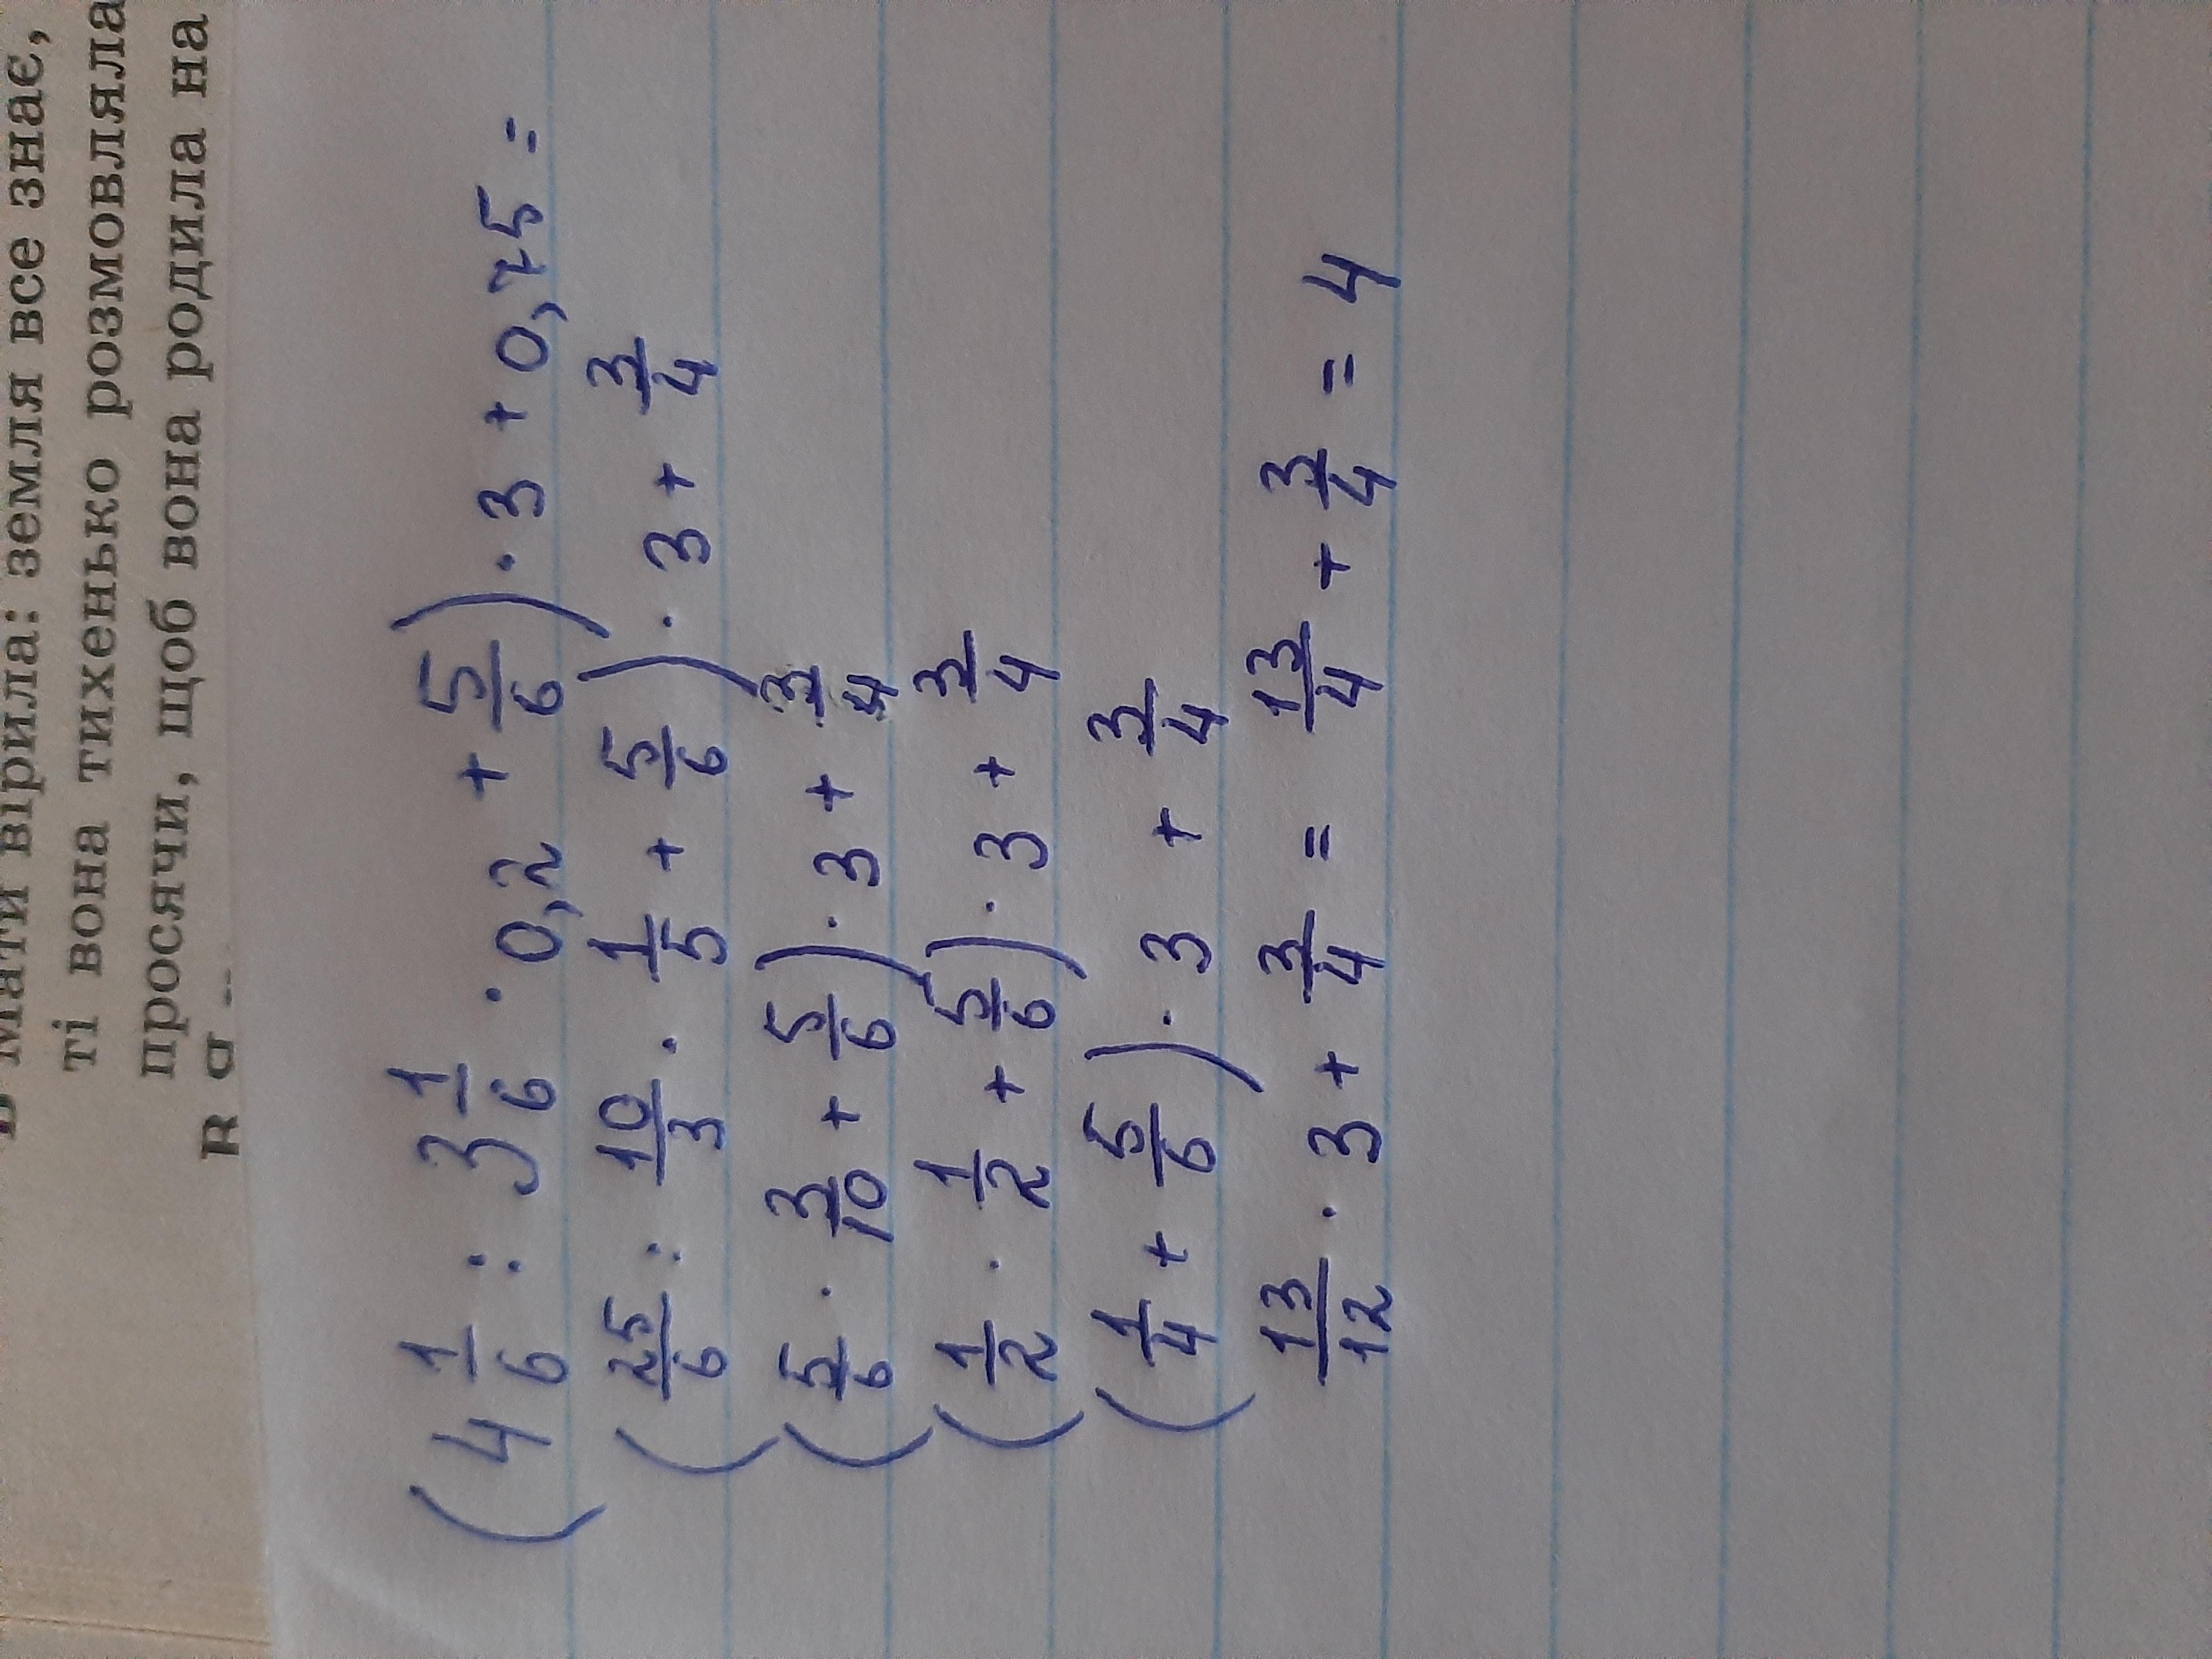 В Мати вірила: земля все знає,
ті вона тихенько розмовляла
просячи, щоб вона родила на
(4 1/6 : 3 1/6 · 0,2 + 5/6) · 3 + 0,75 =
(25/6 : 10/3 · 1/5 + 5/6) · 3 + 3/4
(5/6 · 3/10 + 5/6) · 3 + 3/4
(1/2 · 1/2 + 5/6) · 3 + 3/4
(1/4 + 5/6) · 3 + 3/4
13/12 · 3 + 3/4 = 13/4 + 3/4 = 4